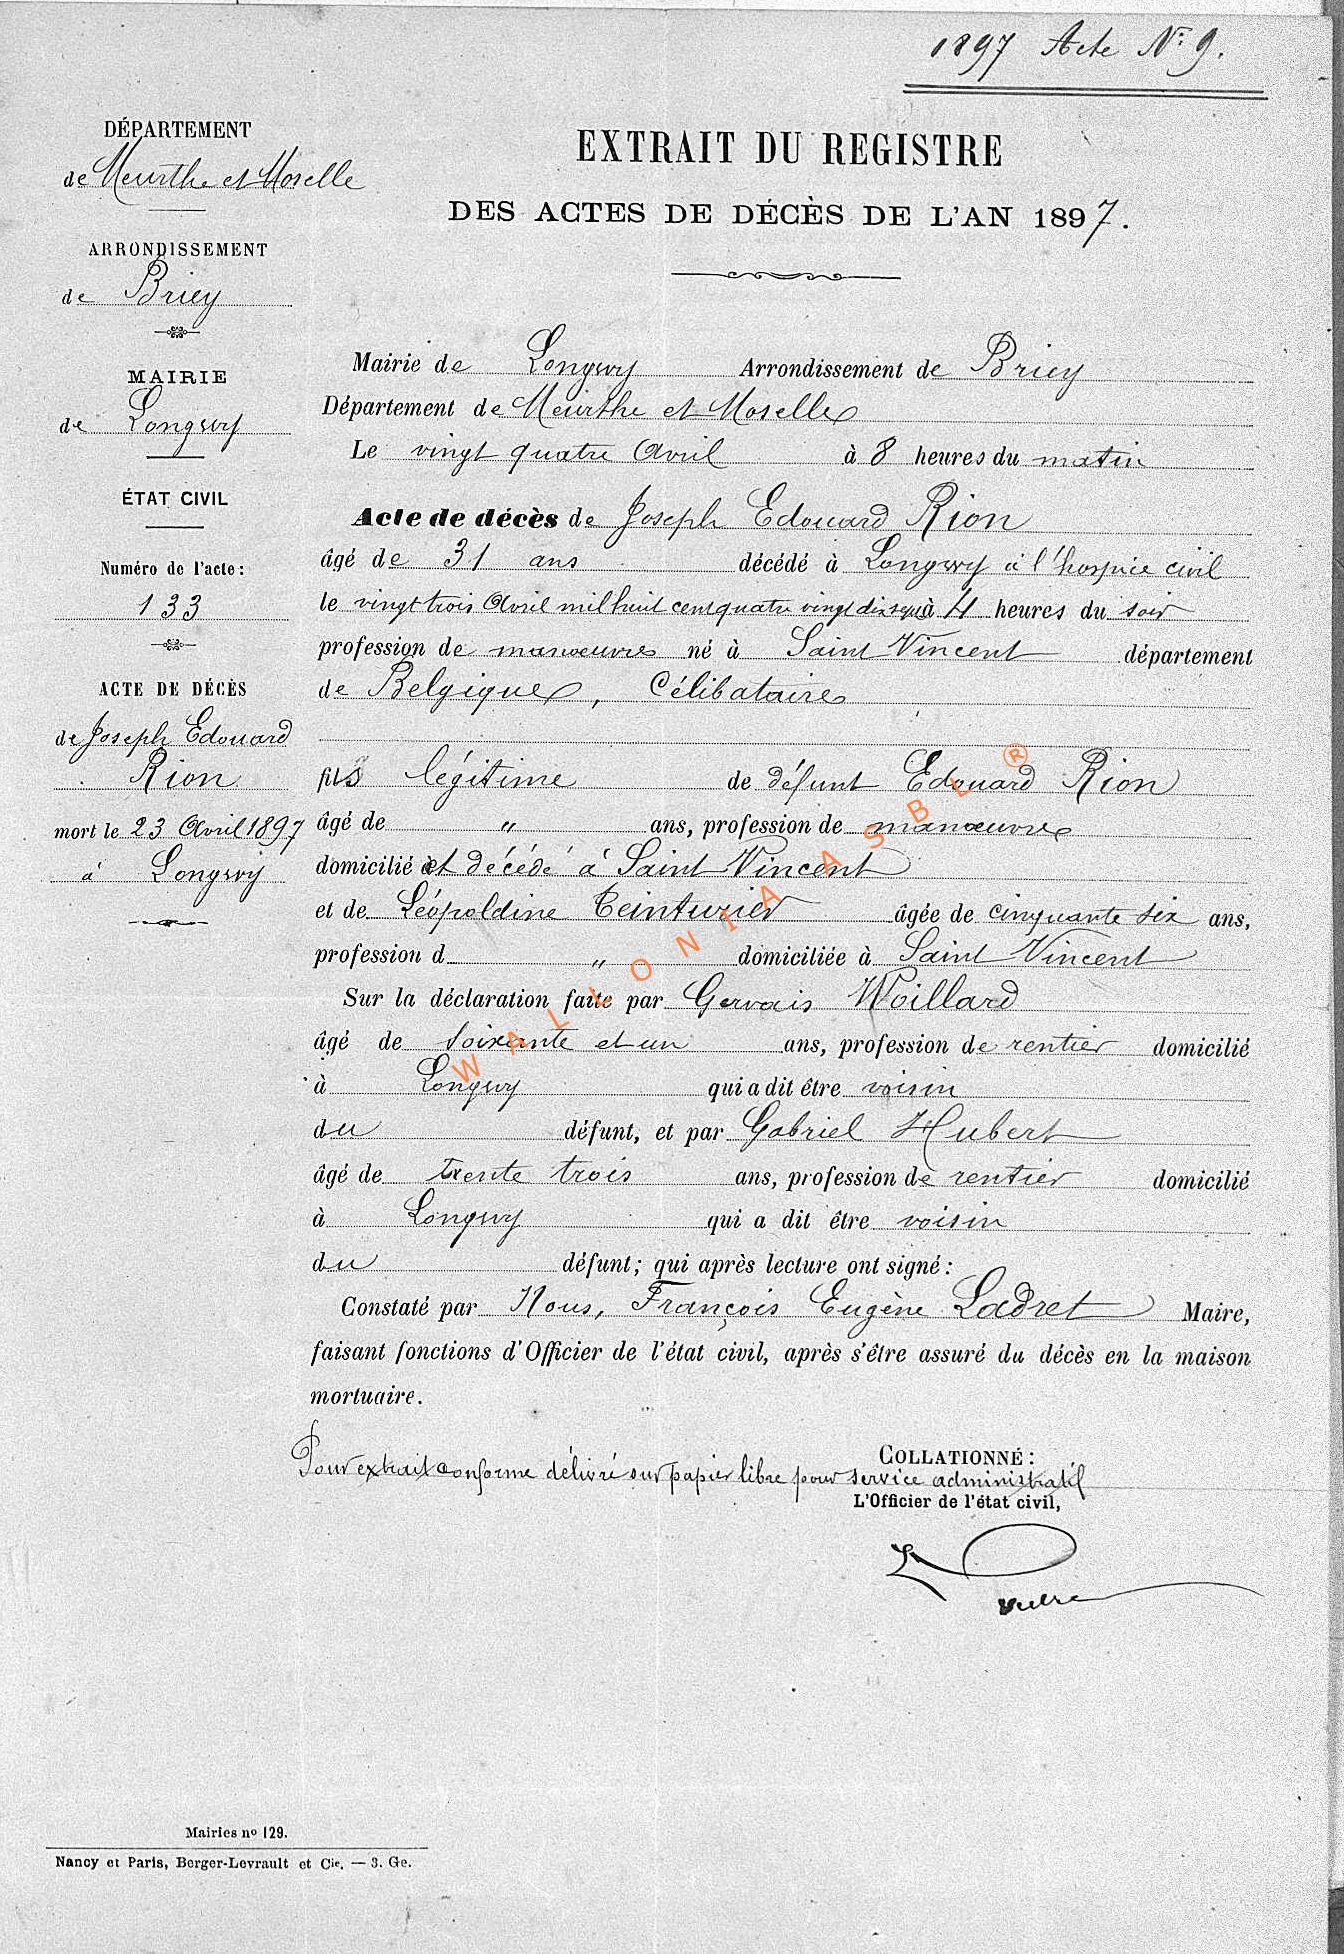 1897 Acte N° 9.
DÉPARTEMENT
de Meurthe et Moselle
ARRONDISSEMENT
de Briey
MAIRIE
de Longwy
ÉTAT CIVIL
Numéro de l'acte:
133
ACTE DE DÉCÈS
de Joseph Edouard
Rion
mort le 23 Avril 1897
à Longwy
EXTRAIT DU REGISTRE
DES ACTES DE DÉCÈS DE L'AN 1897.
Mairie de Longwy Arrondissement de Briey
Département de Meurthe et Moselle
Le vingt quatre Avril à 8 heures du matin
Acte de décès de Joseph Edouard Rion
âgé de 31 ans décédé à Longwy à l'hospice civil
le vingt trois Avril mil huit cent quatre vingt dix sept à 4 heures du soir
profession de manœuvre né à Saint Vincent département
de Belgique, Célibataire
fils légitime de défunt Edouard Rion
âgé de " ans, profession de manœuvre
domicilié et décédé à Saint Vincent
et de Léopoldine Teinturier âgée de cinquante six ans,
profession d " domiciliée à Saint Vincent
Sur la déclaration faite par Gervais Woillard
âgé de soixante et un ans, profession de rentier domicilié
à Longwy qui a dit être voisin
du défunt, et par Gabriel Hubert
âgé de trente trois ans, profession de rentier domicilié
à Longwy qui a dit être voisin
du défunt; qui après lecture ont signé:
Constaté par Nous, François Eugène Ladret Maire,
faisant fonctions d'Officier de l'état civil, après s'être assuré du décès en la maison
mortuaire.
COLLATIONNÉ:
Pour extrait conforme délivré sur papier libre pour service administratif
L'Officier de l'état civil,
Mairies no 129.
Nancy et Paris, Berger-Levrault et Cie. — 3. Ge.
WALLONIA ASBL ®